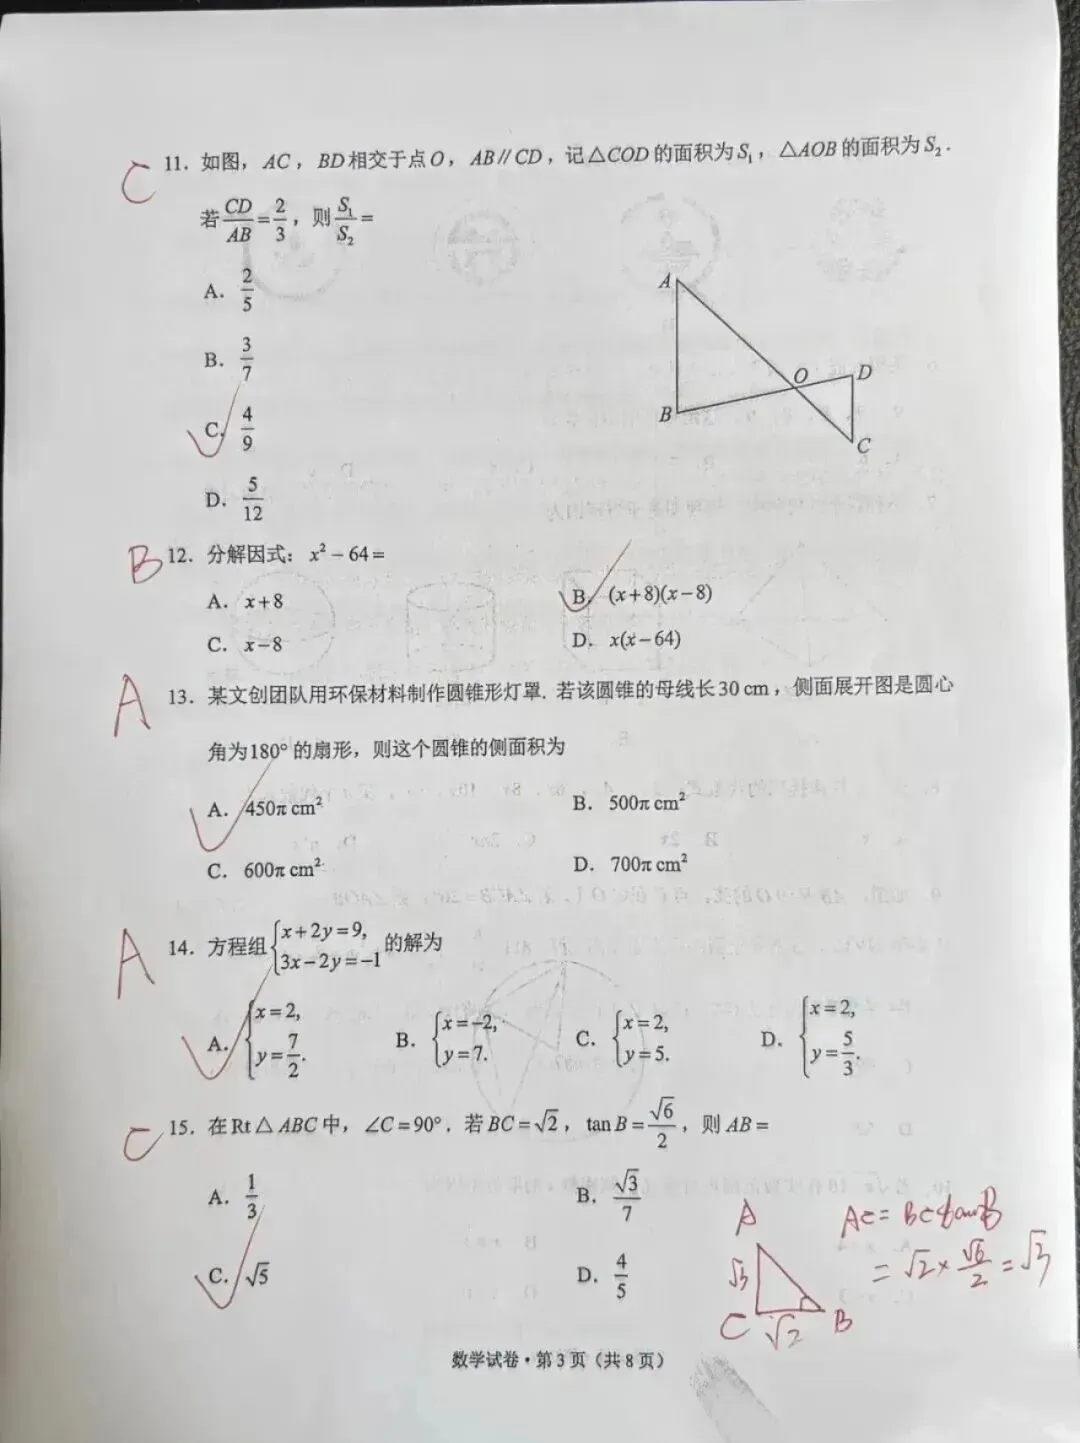 C 11. 如图，AC，BD相交于点O，AB∥CD，记△COD的面积为S₁，△AOB的面积为S₂．
若 CD/AB = 2/3，则 S₁/S₂ =
A. 2/5
B. 3/7
C. 4/9
D. 5/12
A
B
O
D
C
B 12. 分解因式：x² − 64 =
A. x+8 B. (x+8)(x−8)
C. x−8 D. x(x−64)
A 13. 某文创团队用环保材料制作圆锥形灯罩. 若该圆锥的母线长30 cm，侧面展开图是圆心
角为180°的扇形，则这个圆锥的侧面积为
A. 450π cm² B. 500π cm²
C. 600π cm² D. 700π cm²
A 14. 方程组 {x+2y=9, 3x−2y=−1 的解为
A. {x=2, y=7/2. B. {x=−2, y=7. C. {x=2, y=5. D. {x=2, y=5/3.
C 15. 在Rt△ABC中，∠C=90°．若BC=√2，tan B=√6/2，则AB=
A. 1/3 B. √3/7
C. √5 D. 4/5
A
√3
C √2 B
AC = BCtanB
= √2 × √6/2 = √3
数学试卷·第3页（共8页）